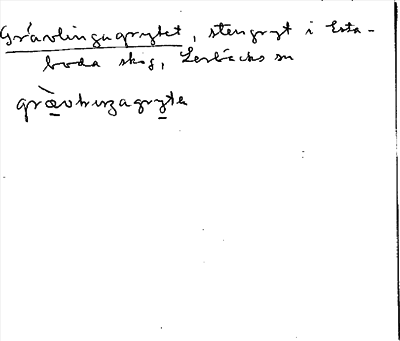 Grävlingagrytet, stengryt i Esta-
boda skog, Lerbäcks sn
græ̀vlıŋagryte